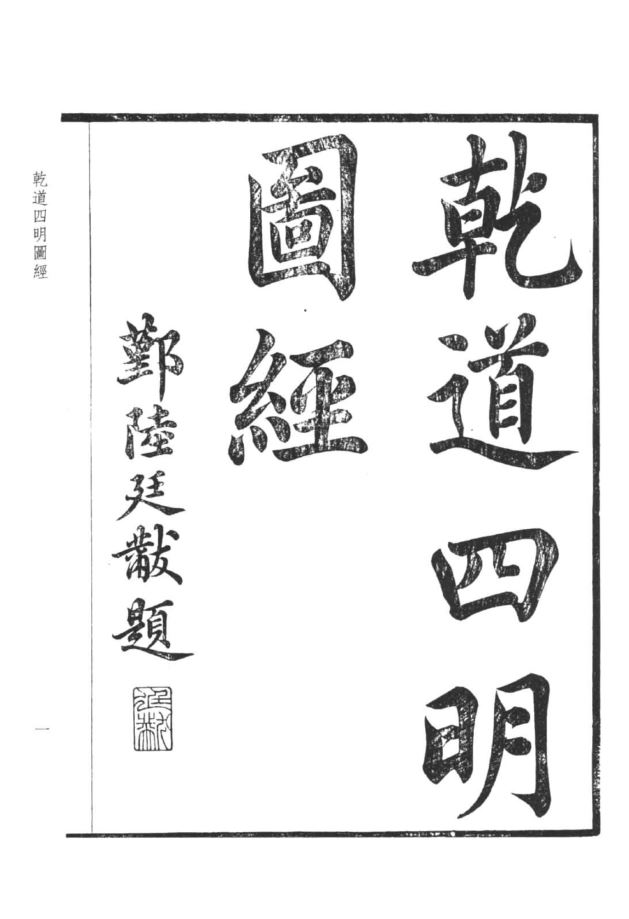 乾道四明
圖經
鄞陸廷黻題
乾道四明圖經
一